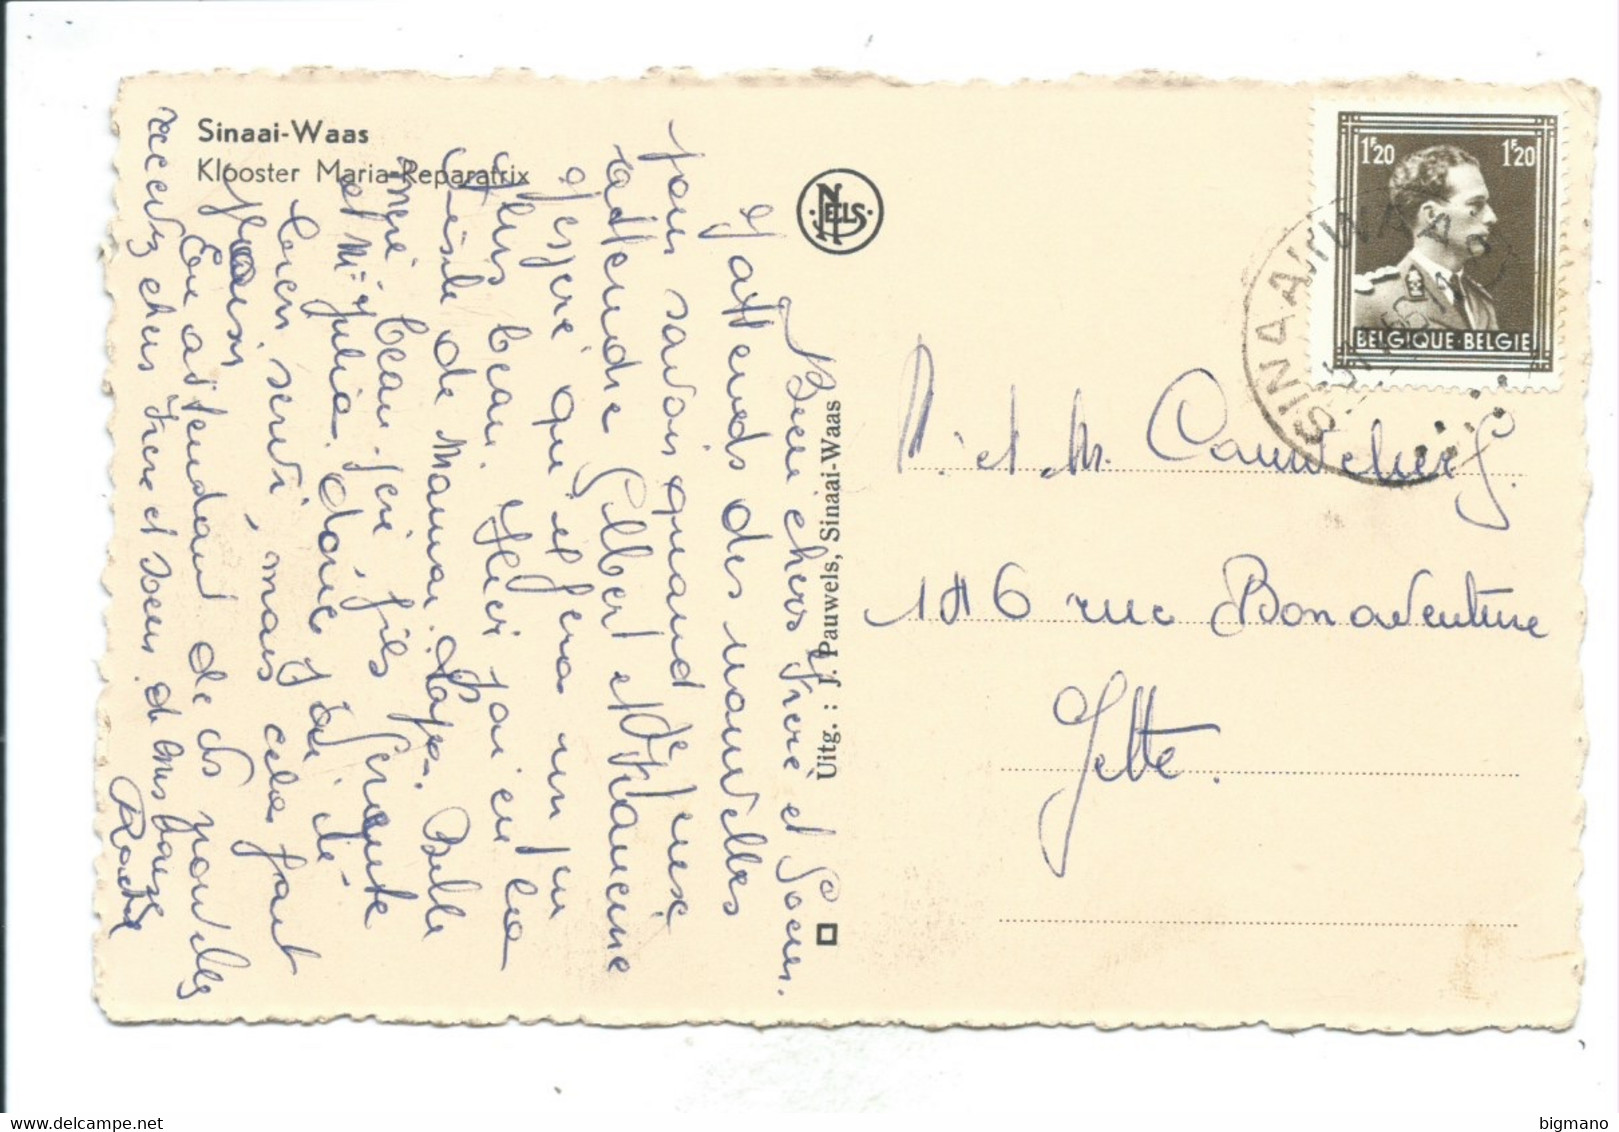 Sinaai-Waas
Klooster Maria-Reparatrix
NELS
Uitg. : J. Pauwels, Sinaai-Waas
1F20 1F20
BELGIQUE-BELGIE
SINAAI (WAAS)
Bien chers Frère et Soeur.
J'attends des nouvelles
pour savoir quand je puis
attendre Gilbert et Francine
J'espère qu'il fera un peu
plus beau. Hier j'ai eu la
visite de Maman. Papa.
mère beau-père fils
et Mme Julia. donc j'ai été
bien servi, mais cela fait
plaisir
En attendant de vos nouvelles
recevez chers Frère et soeur
M. et M. Cauwcherf.
116 rue Bonaventure
Jette.
bigmano